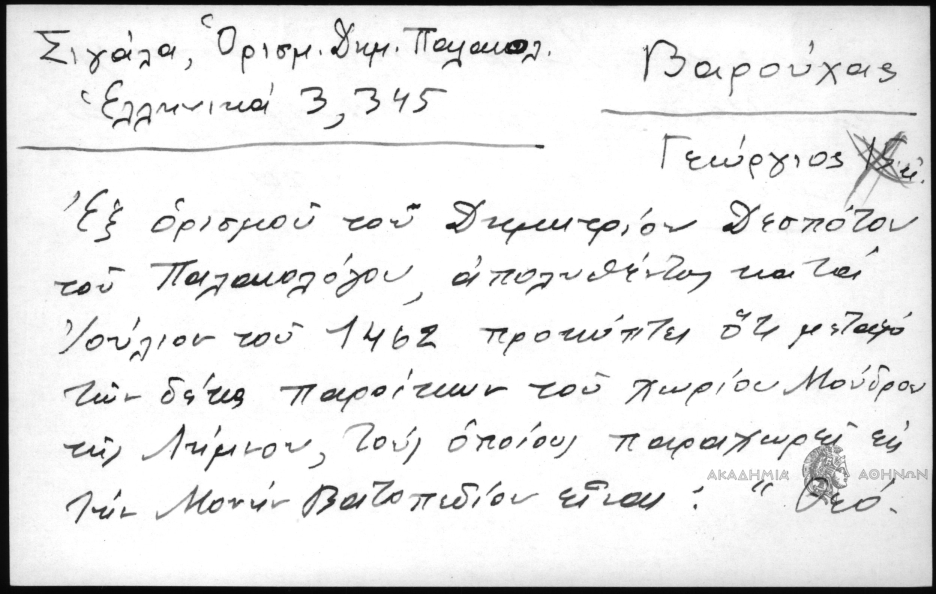 Σιγάλα, Ὁρισμ. Δημ. Παλαιολ.
Ἑλληνικά 3, 345
Βαρούχας
Γεώργιος
Ἐξ ὁρισμοῦ τοῦ Δημητρίου Δεσπότου
τοῦ Παλαιολόγου, ἀπολυθέντος κατά
Ἰούλιον τοῦ 1462 προκύπτει ὅτι μεταξύ
τῶν δέκα παροίκων τοῦ χωρίου Μούδρου
τῆς Λήμνου, τούς ὁποίους παραχωρεῖ εἰς
τήν Μονήν Βατοπεδίου εἶναι: "Θεό-
ΑΚΑΔΗΜΙΑ ΑΘΗΝΩΝ